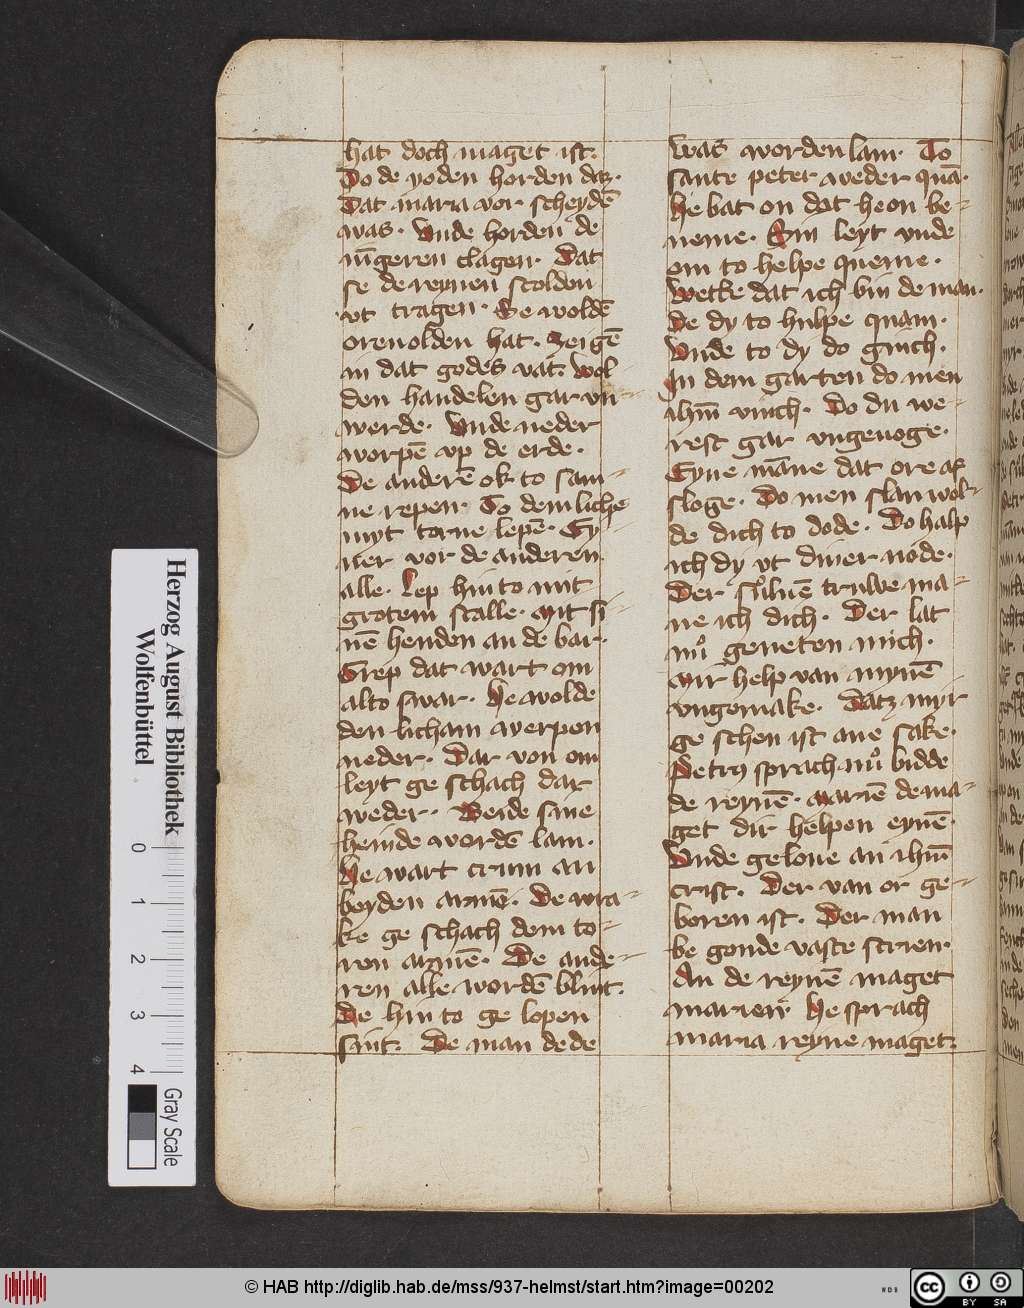 hat doch maget ist.
Do de yoden horden daz.
Dat maria vor scheydē
was. Vnde horden de
iūgeren clagen. Dat
se de reynen scolden
vt tragen. Se woldē
oren olden hat. Zeigē
in dat godes vat. Wol
den handelen gar vn-
werde. Vnde neder
worpē vp de erde.
De anderē ok to sam-
ne repen. To dem liche
myt torne lepē. Ey-
ner vor de anderen
alle. Lep hin to mit
grotem scalle. Mit si-
nē henden an de bar.
Grep dat wart om
alto swar. He wolde
den licham werpen
neder. Dar von om
leyt ge schach dar
weder. Beide sine
hende wordē lam.
He wart crum an
beyden armē. De wra-
ke ge schach dem to-
ren armē. De ande-
ren alle wordē blint.
De hin to ge lopen
sint. De man dede
was worden lam. To
sante peter weder quā.
He bat on dat he on be-
neme. Sin leyt vnde
om to helpe queme.
Wetke dat ich bin de man.
De dy to hulpe quam.
Vnde to dy do ginch.
In dem garten do men
ihm̄ vinch. Do du we-
rest gar vngenoge.
Eyne māne dat ore af
sloge. Do men slan wol-
de dich to dode. Do halp
ich dy vt diner node.
Der suluē truwe ma-
ne ich dich. Der lat
nu geneten mich.
Mir help van mynē
vngemake. Datz myr
ge schen ist ane sake.
Petrus sprach nu bidde
de reynē. Mariē de ma-
get dir helpen eynē.
Vnde geloue an ihm̄
crist. Der van or ge-
boren ist. Der man
be gonde vaste scrien.
An de reynē maget
marien. He sprach
maria reyne maget.
Herzog August Bibliothek
Wolfenbüttel
0 1 2 3 4
Gray Scale
© HAB http://diglib.hab.de/mss/937-helmst/start.htm?image=00202
WDB
cc BY SA